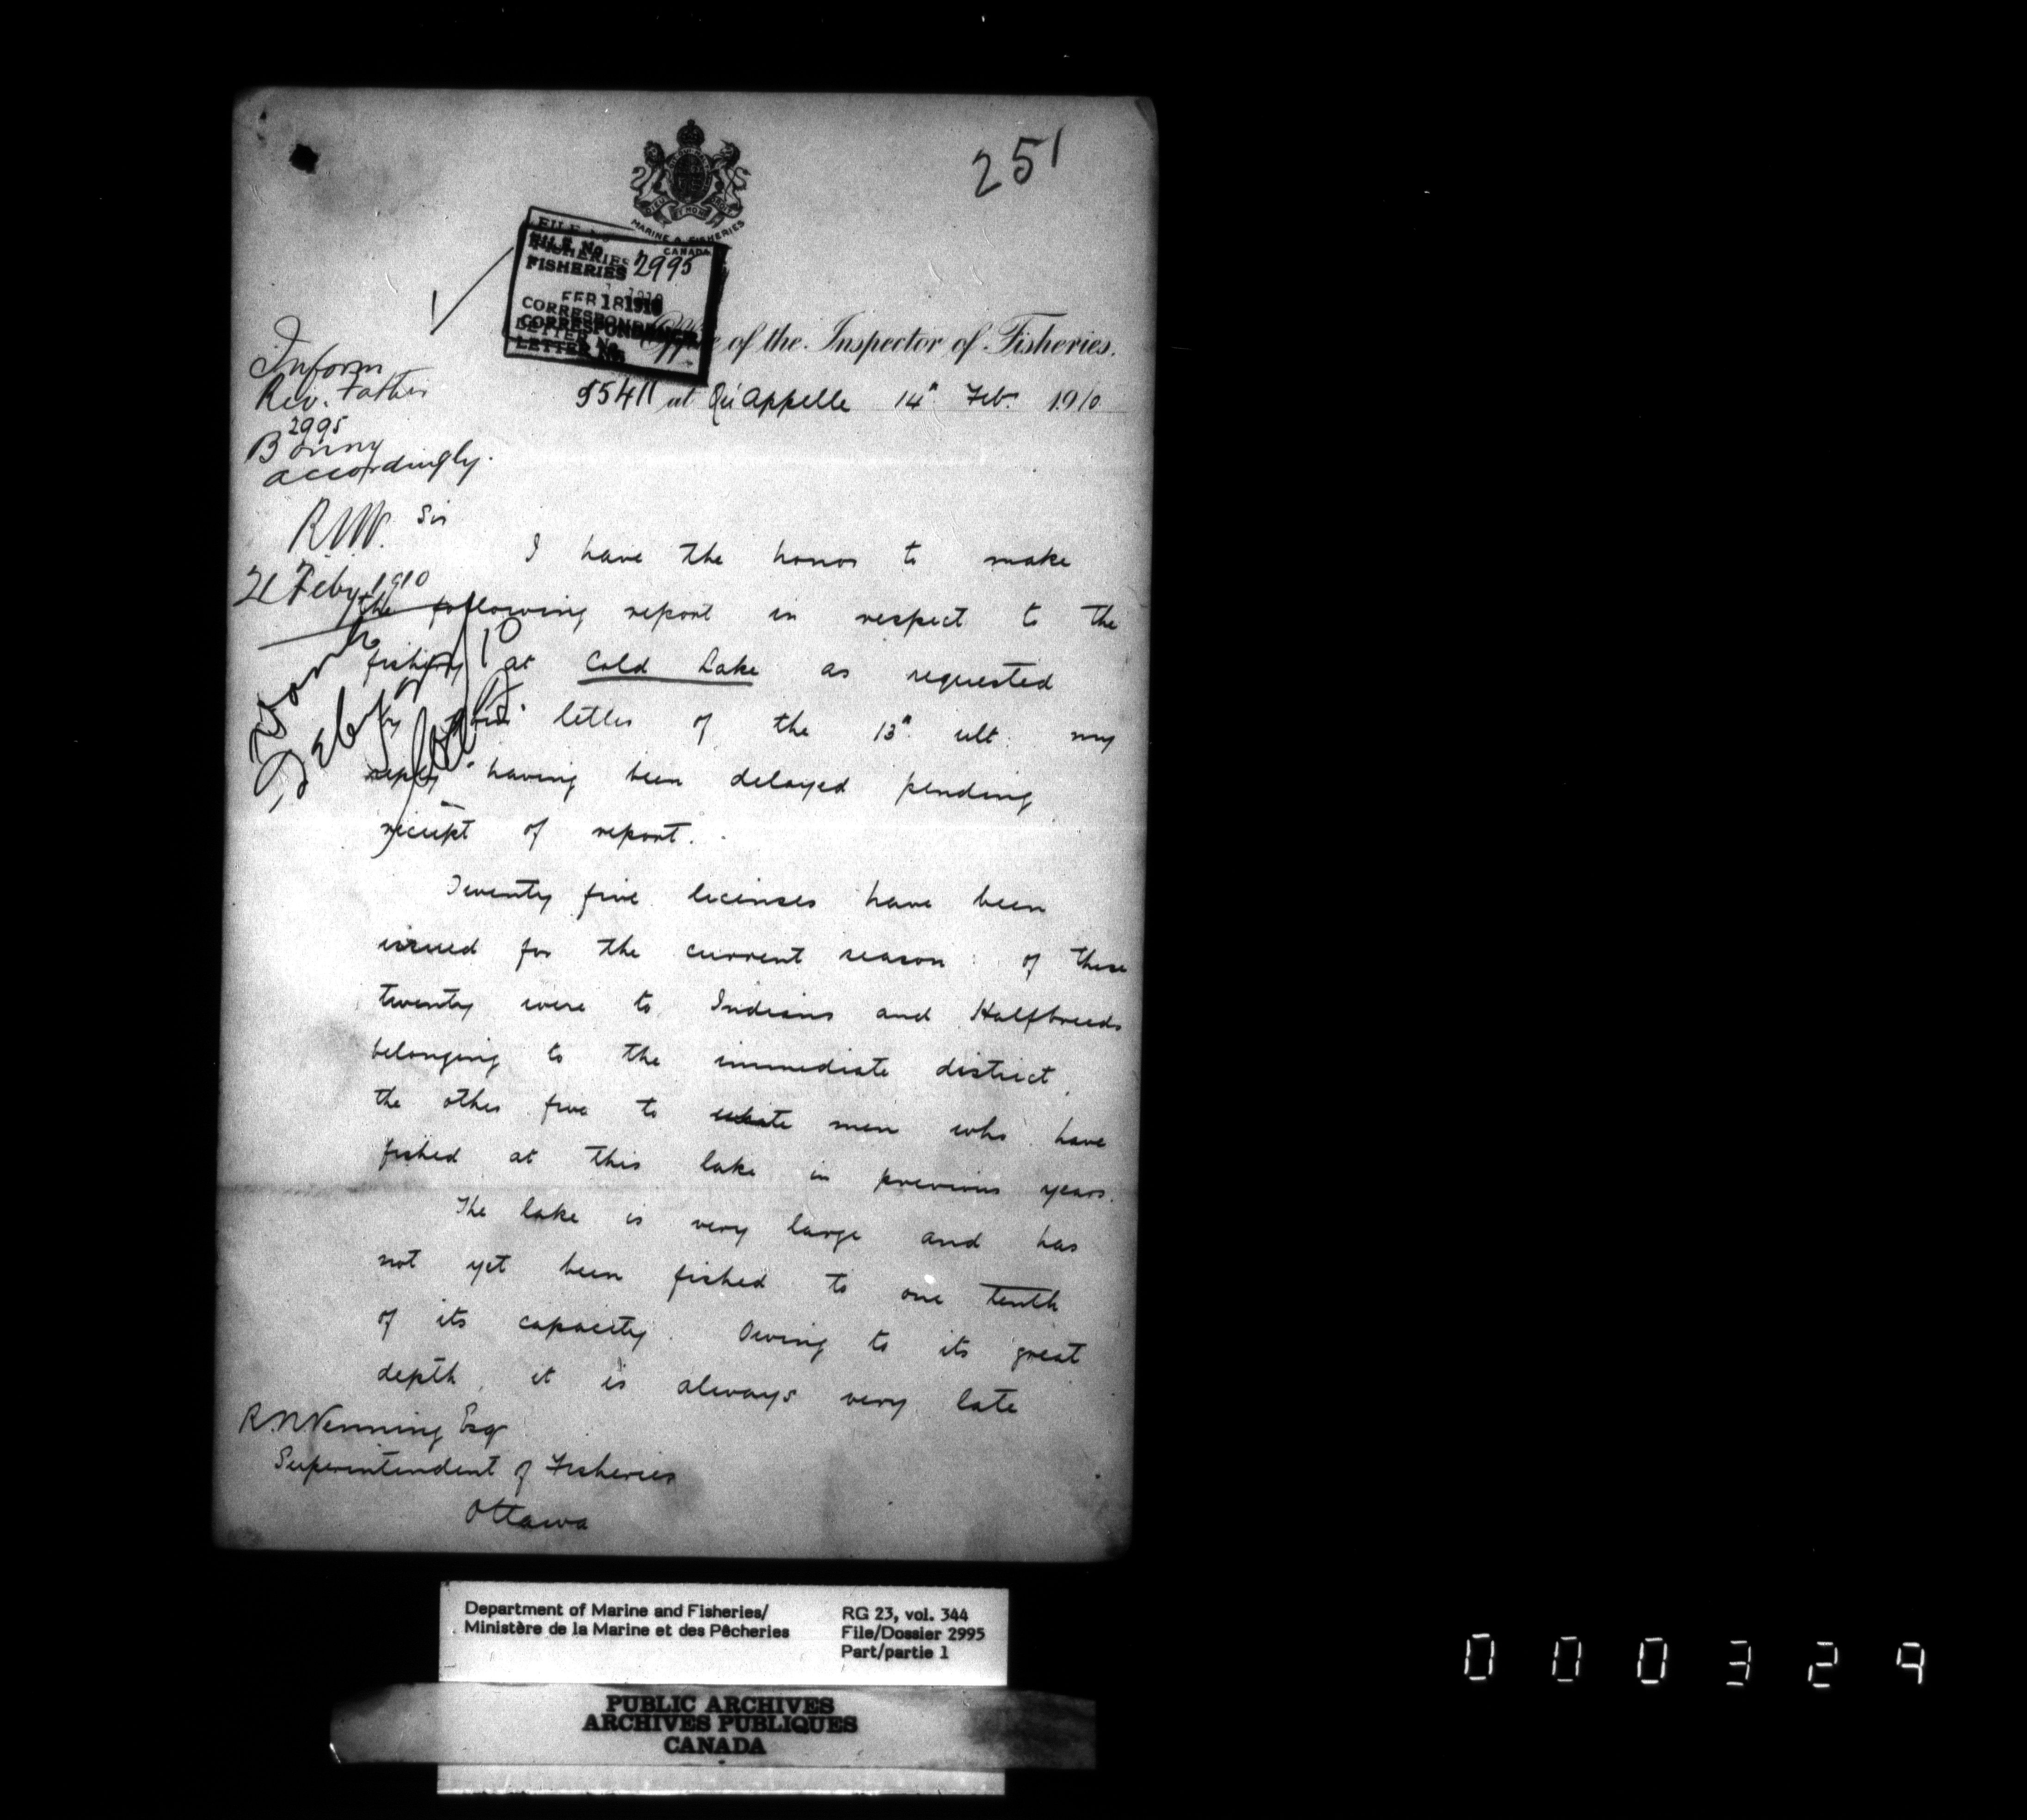 251
MARINE & FISHERIES
CANADA
FILE No.
FISHERIES 2995
FEB 18 1910
CORRESPONDENCE
LETTER No.
Office of the Inspector of Fisheries.
55411 at Qu'Appelle 14" Feb. 1910
Inform
Rev. Father
2995
Bonny
accordingly.
R.N.V.
21 Feby 1910
Sir
I have the honor to make
the following report in respect to the
fishery at Cold Lake as requested
by letter of the 13" ult. my
reply having been delayed pending
receipt of report.
Twenty five licenses have been
issued for the current season: of these
twenty were to Indians and Halfbreeds
belonging to the immediate district,
the other five to white men who have
fished at this lake in previous years.
The lake is very large and has
not yet been fished to one tenth
of its capacity. Owing to its great
depth, it is always very late
R.N. Venning Esq
Superintendent of Fisheries
Ottawa
Department of Marine and Fisheries/
Ministère de la Marine et des Pêcheries
RG 23, vol. 344
File/Dossier 2995
Part/partie 1
PUBLIC ARCHIVES
ARCHIVES PUBLIQUES
CANADA
000329